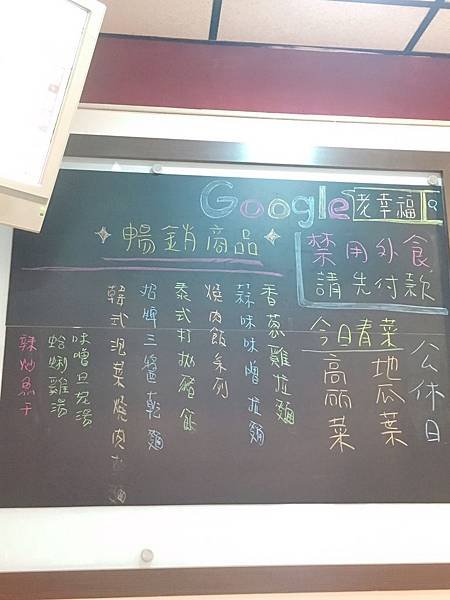 Google 老幸福
✦暢銷商品✦
禁用外食
請先付款
公休日
今日青菜
地瓜葉
高麗菜
香蔥雞拉麵
蒜味味噌拉麵
燒肉飯系列
泰式打拋豬飯
招牌三醬乾麵
韓式泡菜燒肉拉麵
味噌豆皮湯
蛤蜊雞湯
辣炒魚干